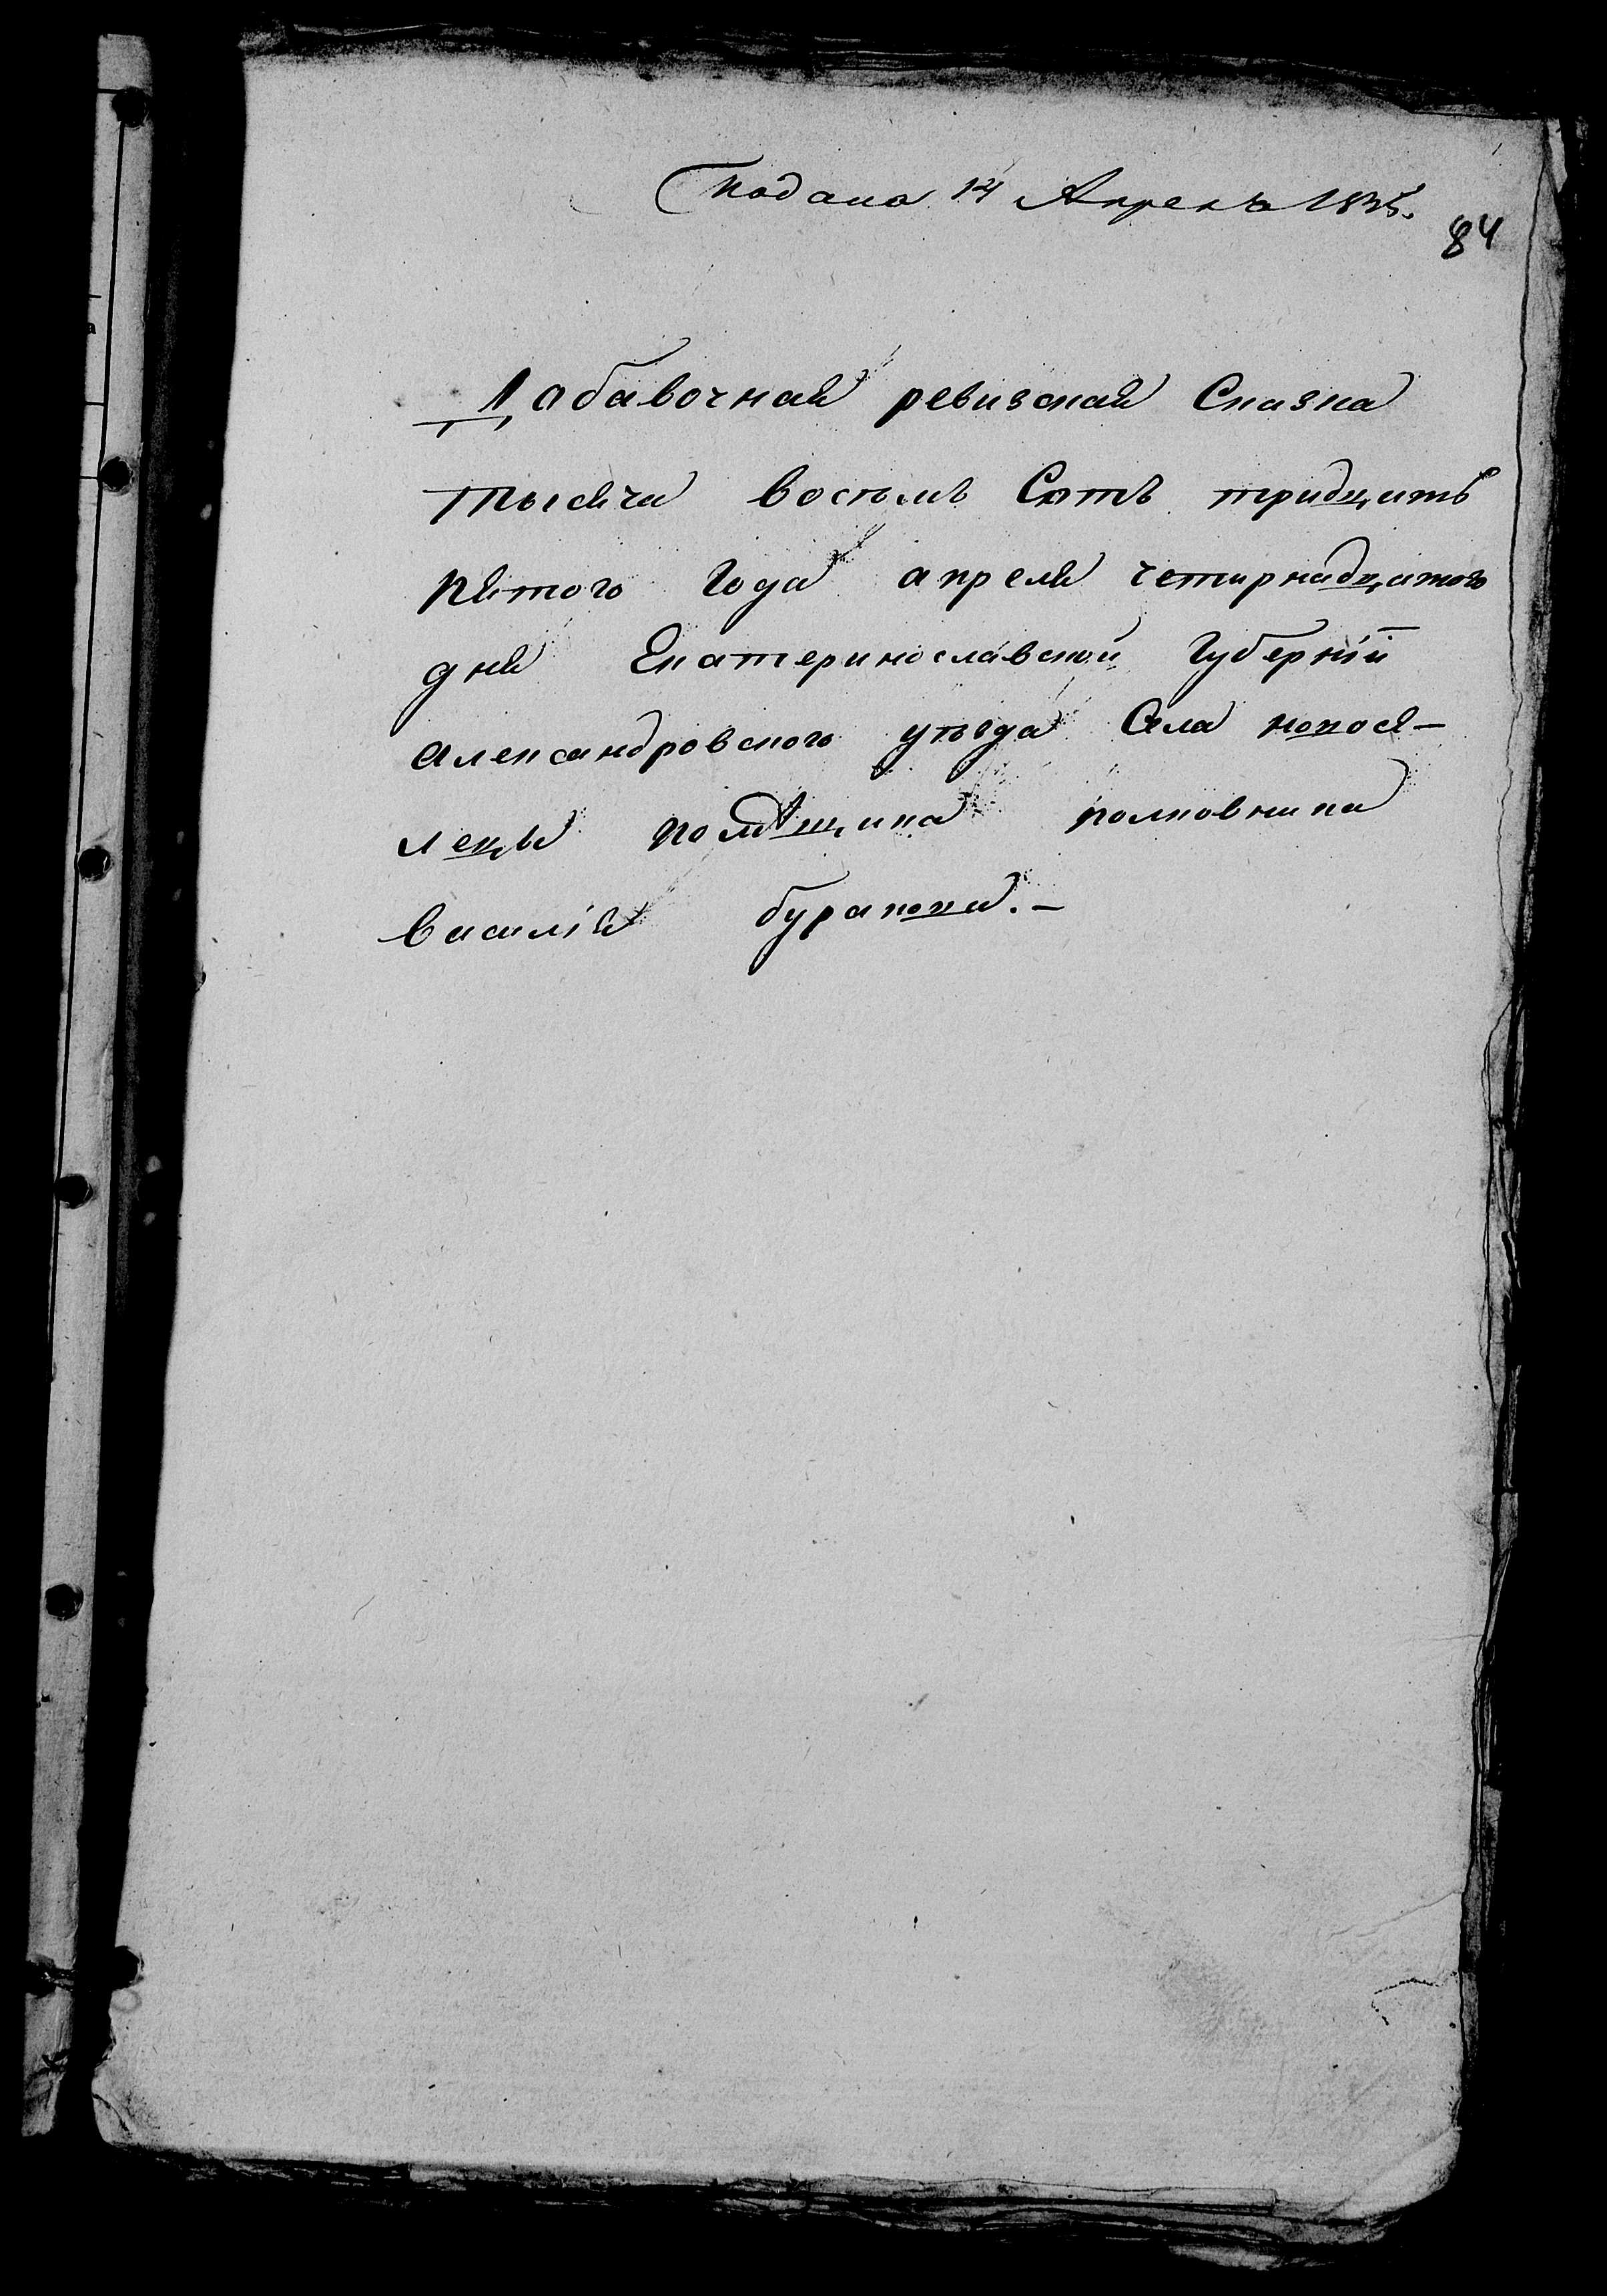 Подана 14 Апреля 1835.
84
Добавочная ревизская Сказка
тысяча восемъ Сотъ тридцать
пятого года апреля четирнадцатого
дня Екатеринославской Губернїи
александровского уѣзда Села
помѣщика полковника
василїя